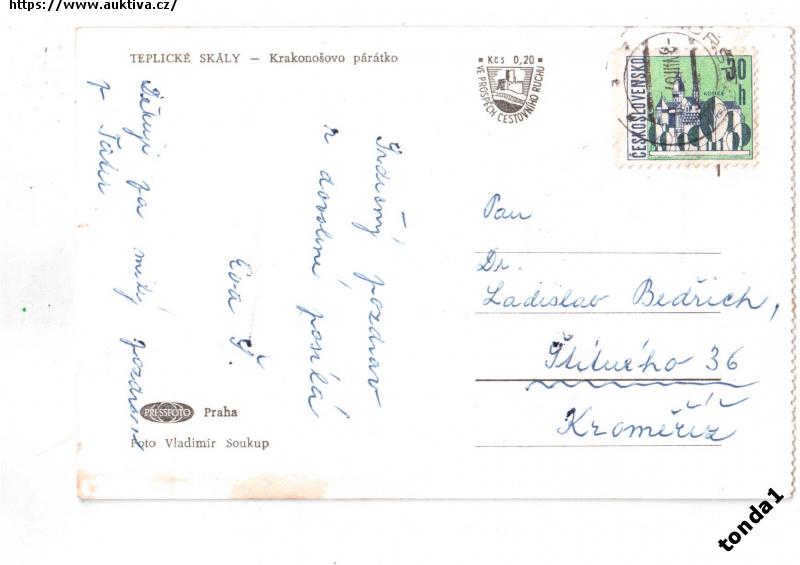 https://www.auktiva.cz/
TEPLICKÉ SKÁLY — Krakonošovo párátko
Kčs 0,20
VE PROSPĚCH CESTOVNÍHO RUCHU
ČESKOSLOVENSKO
30 h
Srdečný pozdrav
z dovolené posílá
Eva Š.
Děkuji za milý pozdrav
z Tater
Pan
Dr.
Ladislav Bedřich,
Štítného 36
Kroměříž
PRESSFOTO Praha
Foto Vladimír Soukup
tonda1